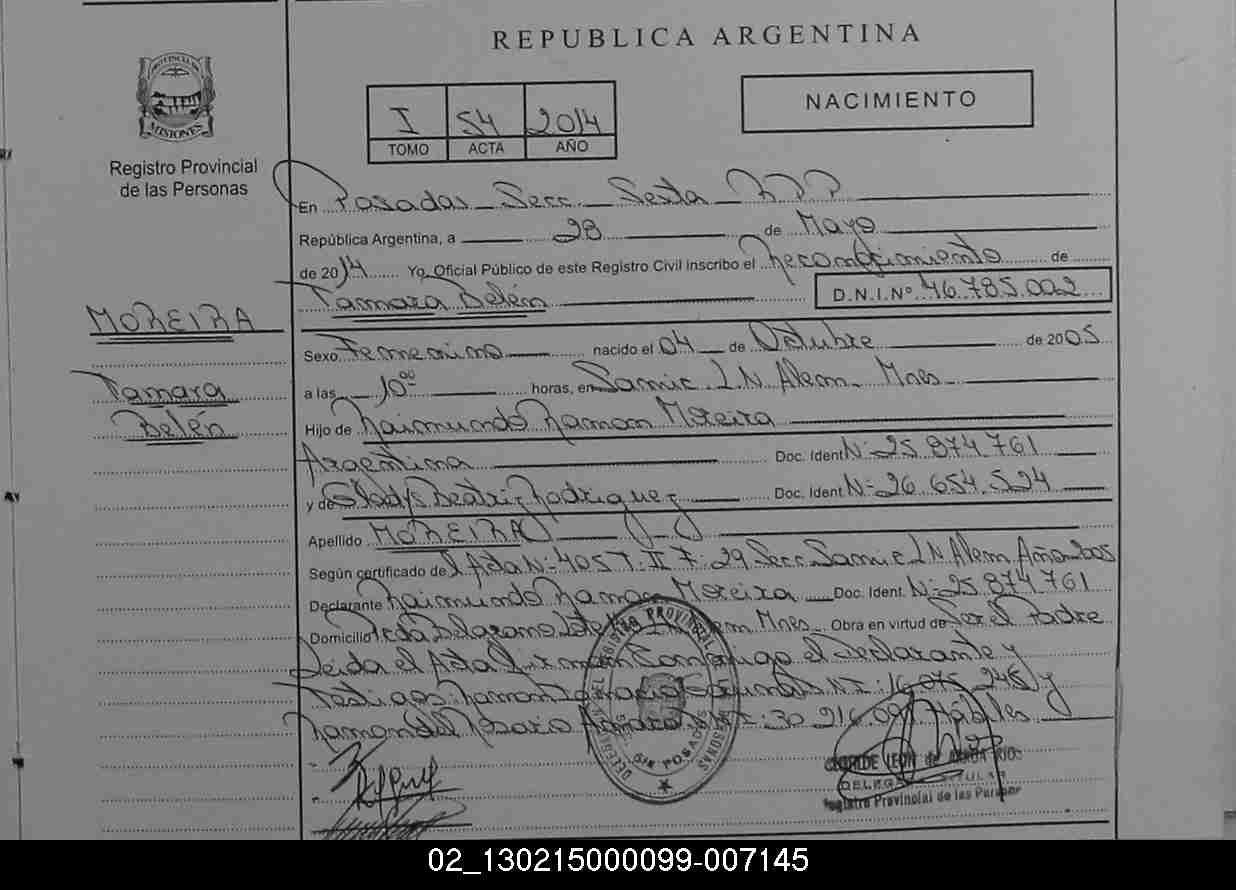 REPUBLICA ARGENTINA
PROVINCIA DE
MISIONES
Registro Provincial
de las Personas
I 54 2014
TOMO ACTA AÑO
NACIMIENTO
En Posadas Secc. Sexta RPP
República Argentina, a 28 de Mayo
de 2014 Yo, Oficial Público de este Registro Civil inscribo el Reconocimiento de
Tamara Belén D.N.I.Nº 46.785.002
MOREIRA
Tamara
Belén
Sexo Femenino nacido el 04 de Octubre de 2005
a las 10⁰⁰ horas, en Samic L.N. Alem Mnes
Hijo de Raimundo Ramon Moreira
Argentina Doc. Ident Nº 25.874.761
y de Gladys Beatriz Rodriguez Doc. Ident Nº 26.654.524
Apellido MOREIRA
Según certificado de Acta Nº 405 T: II F: 29 Secc Samic L.N Alem Año 2005
Declarante Raimundo Ramon Moreira Doc. Ident. Nº 25.874.761
Domicilio Belgrano Lote Alem Mnes Obra en virtud de Ser el Padre
Leida el Acta firman Conmigo el Declarante y
Testigos Ramon D.N.I: 16.075.245 y
Ramon del Rosario 30.216.091 Hábiles
REGISTRO PROVINCIAL DE LAS PERSONAS
POSADAS
LEON de
DELEGADA TITULAR
Registro Provincial de las Personas
02_130215000099-007145